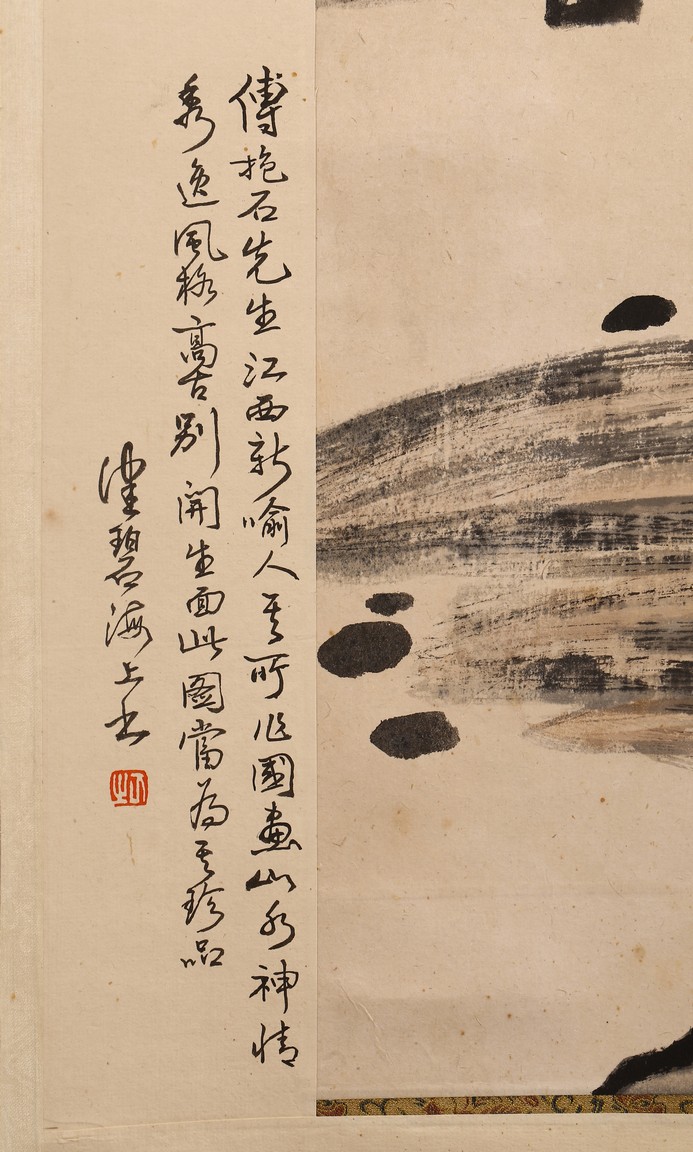 傅抱石先生江西新喻人其所作國畫山水神情
秀逸風格高古別開生面此圖當為其珍品
碧海上